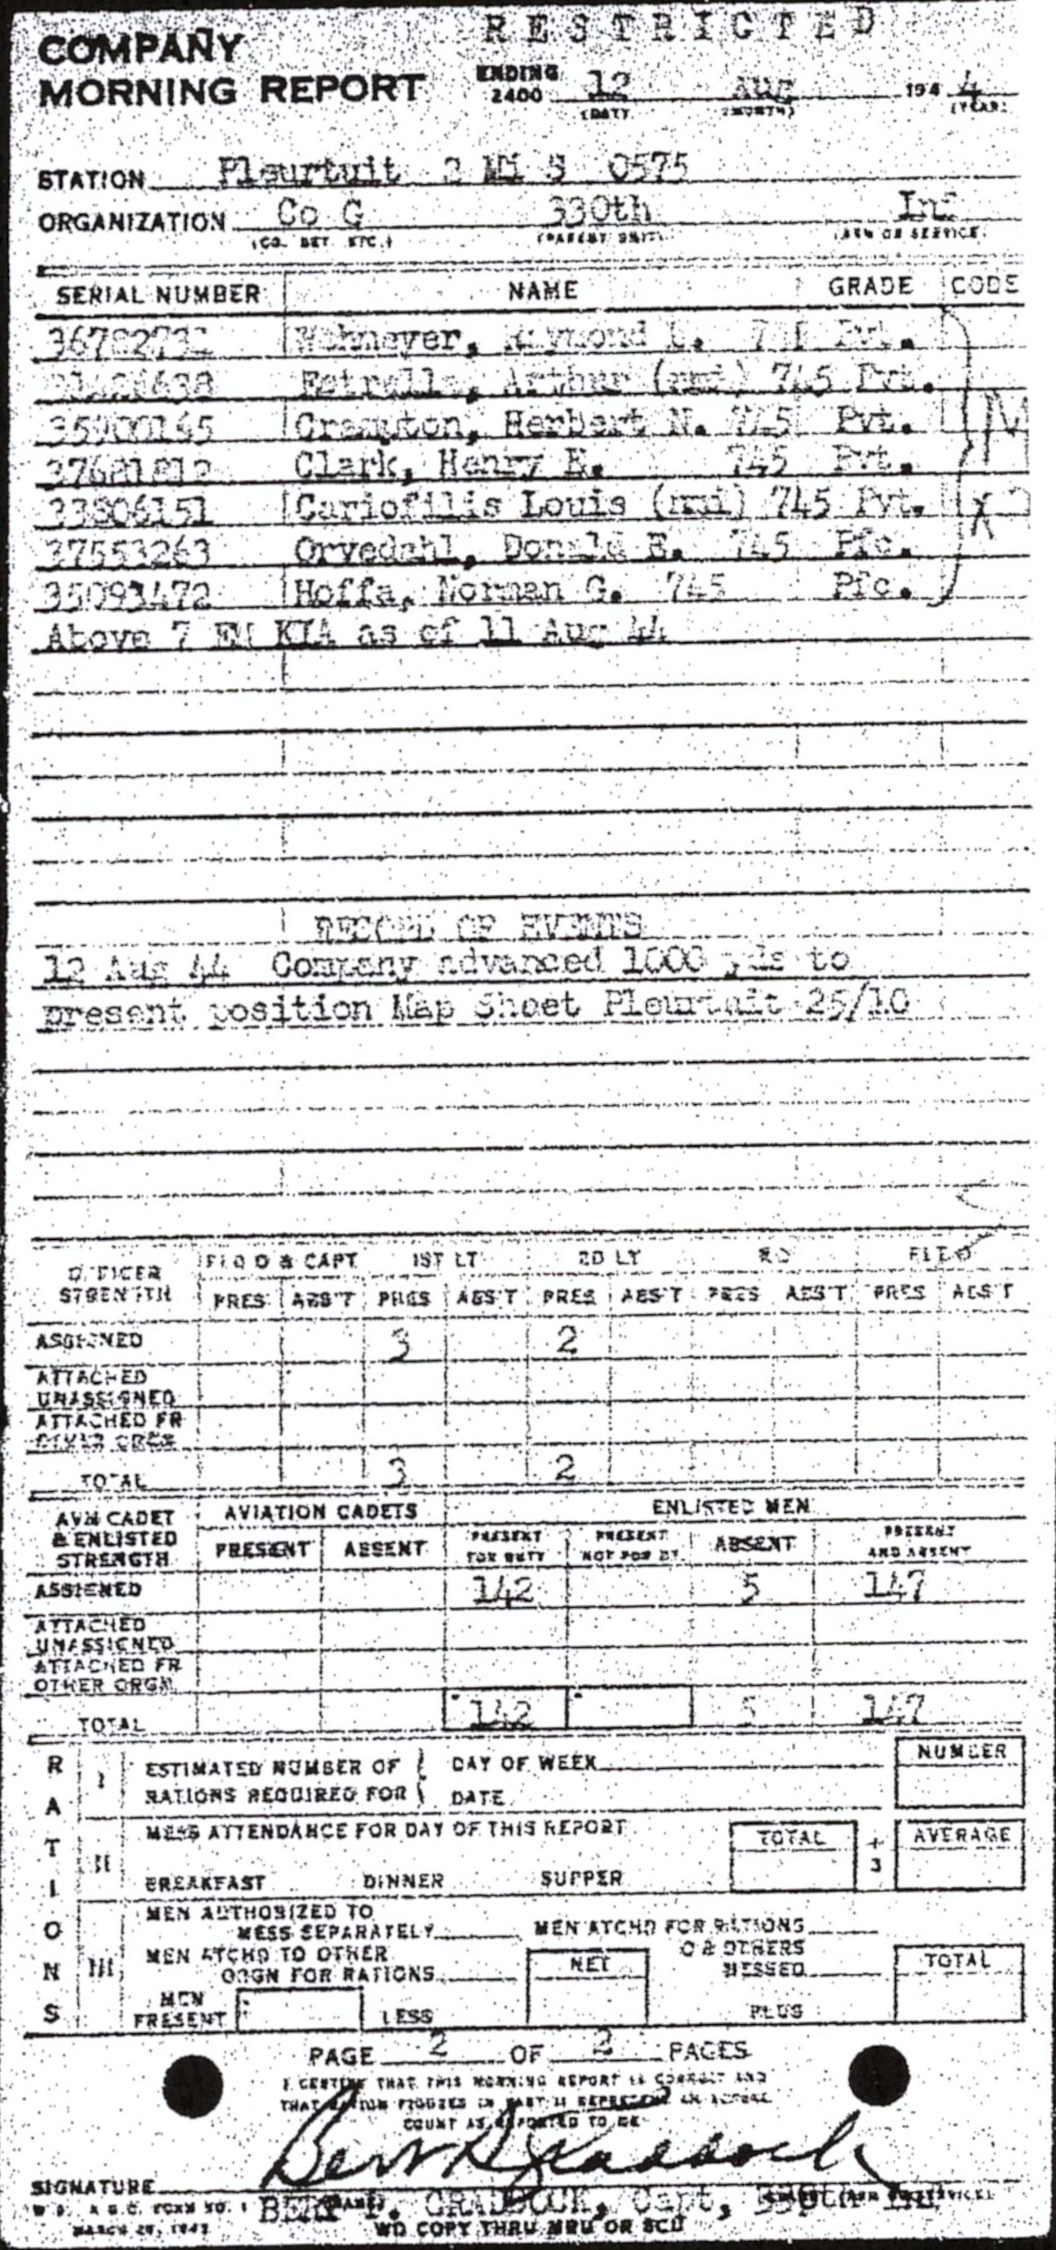 RESTRICTED
COMPANY
MORNING REPORT ENDING 2400 12 Aug 194 4
(DAY) (MONTH) (YEAR)
STATION Pleurtuit 2 Mi S 0575
ORGANIZATION Co G 330th Inf
(CO. DET. ETC.) (PARENT UNIT) (ARM OR SERVICE)
SERIAL NUMBER NAME GRADE CODE
Raymond Pvt.
Arthur (nmi) 745 Pvt.
35900165 Herbert N. 745 Pvt.
37681812 Clark, Henry E. 745 Pvt.
33806151 Cariofilis Louis (nmi) 745 Pvt.
37553263 Orvedahl, Donald E. 745 Pfc.
35093472 Hoffa, Norman G. 745 Pfc.
Above 7 EM KIA as of 11 Aug 44
RECORD OF EVENTS
12 Aug 44 Company advanced 1000 yds to
present position Map Sheet Pleurtuit 25/10
OFFICER STRENGTH FLD O & CAPT 1ST LT 2D LT FLT O
PRES ABS'T PRES ABS'T PRES ABS'T PRES ABS'T PRES ABS'T
ASSIGNED 3 2
ATTACHED UNASSIGNED
ATTACHED FR OTHER ORGN
TOTAL 3 2
AVN CADET & ENLISTED STRENGTH AVIATION CADETS ENLISTED MEN
PRESENT ABSENT PRESENT FOR DUTY PRESENT NOT FOR DY ABSENT PRESENT AND ABSENT
ASSIGNED 142 5 147
ATTACHED UNASSIGNED
ATTACHED FR OTHER ORGN
TOTAL 142 5 147
RATIONS
I ESTIMATED NUMBER OF DAY OF WEEK NUMBER
RATIONS REQUIRED FOR DATE
II MESS ATTENDANCE FOR DAY OF THIS REPORT TOTAL ÷ 3 AVERAGE
BREAKFAST DINNER SUPPER
III MEN AUTHORIZED TO
MESS SEPARATELY MEN ATCHD FOR RATIONS
MEN ATCHD TO OTHER O & OTHERS
ORGN FOR RATIONS NET MESSED TOTAL
MEN PRESENT LESS PLUS
PAGE 2 OF 2 PAGES
I CERTIFY THAT THIS MORNING REPORT IS CORRECT AND
THAT RATION FIGURES IN PART II REPRESENT AN ACTUAL
COUNT AS REPORTED TO ME
SIGNATURE
W D A G O FORM NO. 1 CRADDOCK, Capt, 330th Inf
MARCH WD COPY THRU MRU OR SCU